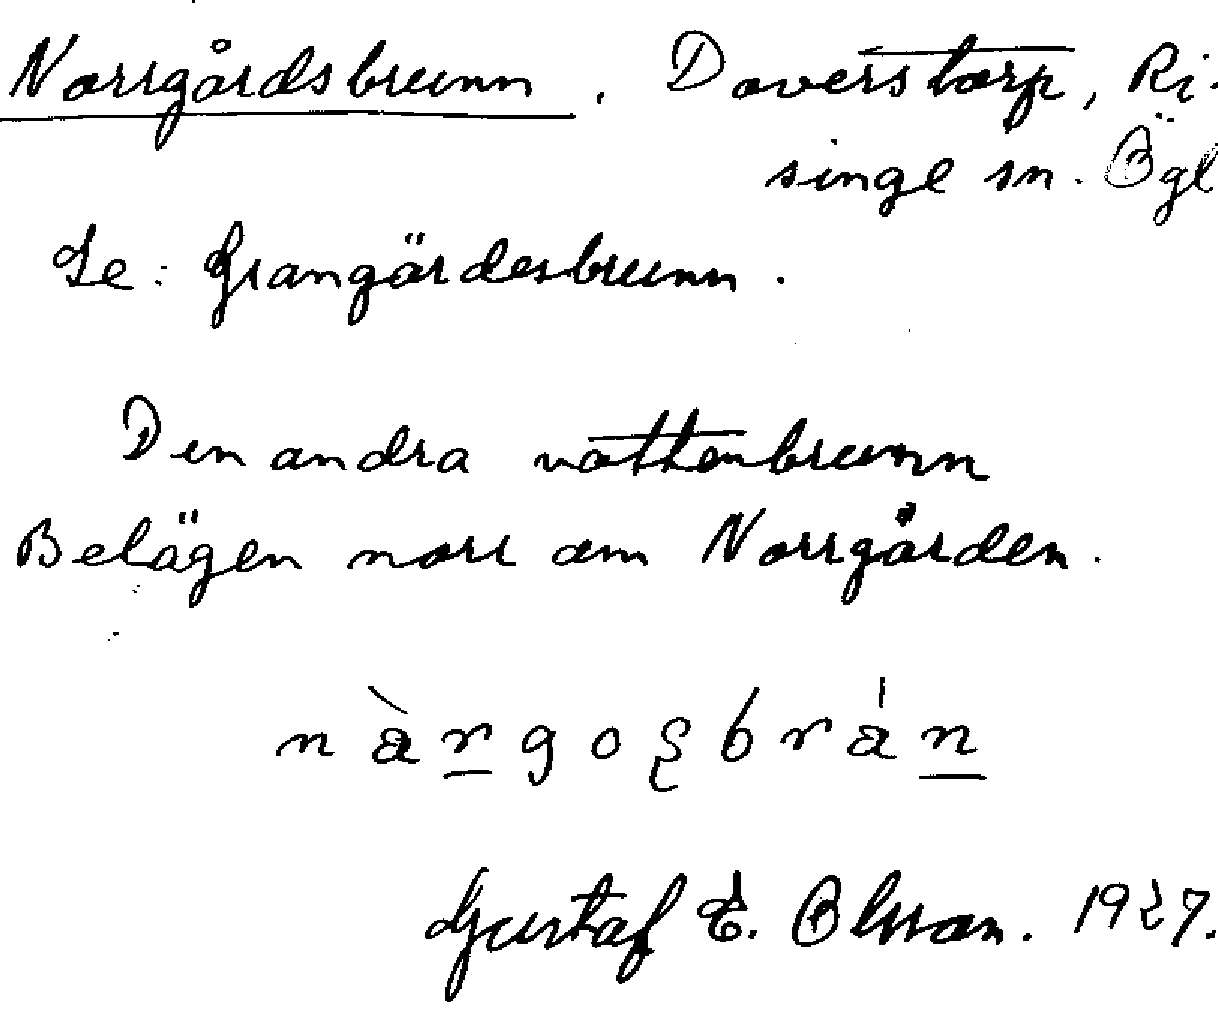 Norrgårdsbrunn. Doverstorp, Ri-
singe sn. Ögl
Se: Grangärdesbrunn.
Den andra vattenbrunn
Belägen norr om Norrgården.
Gustaf E. Olsson. 1927.